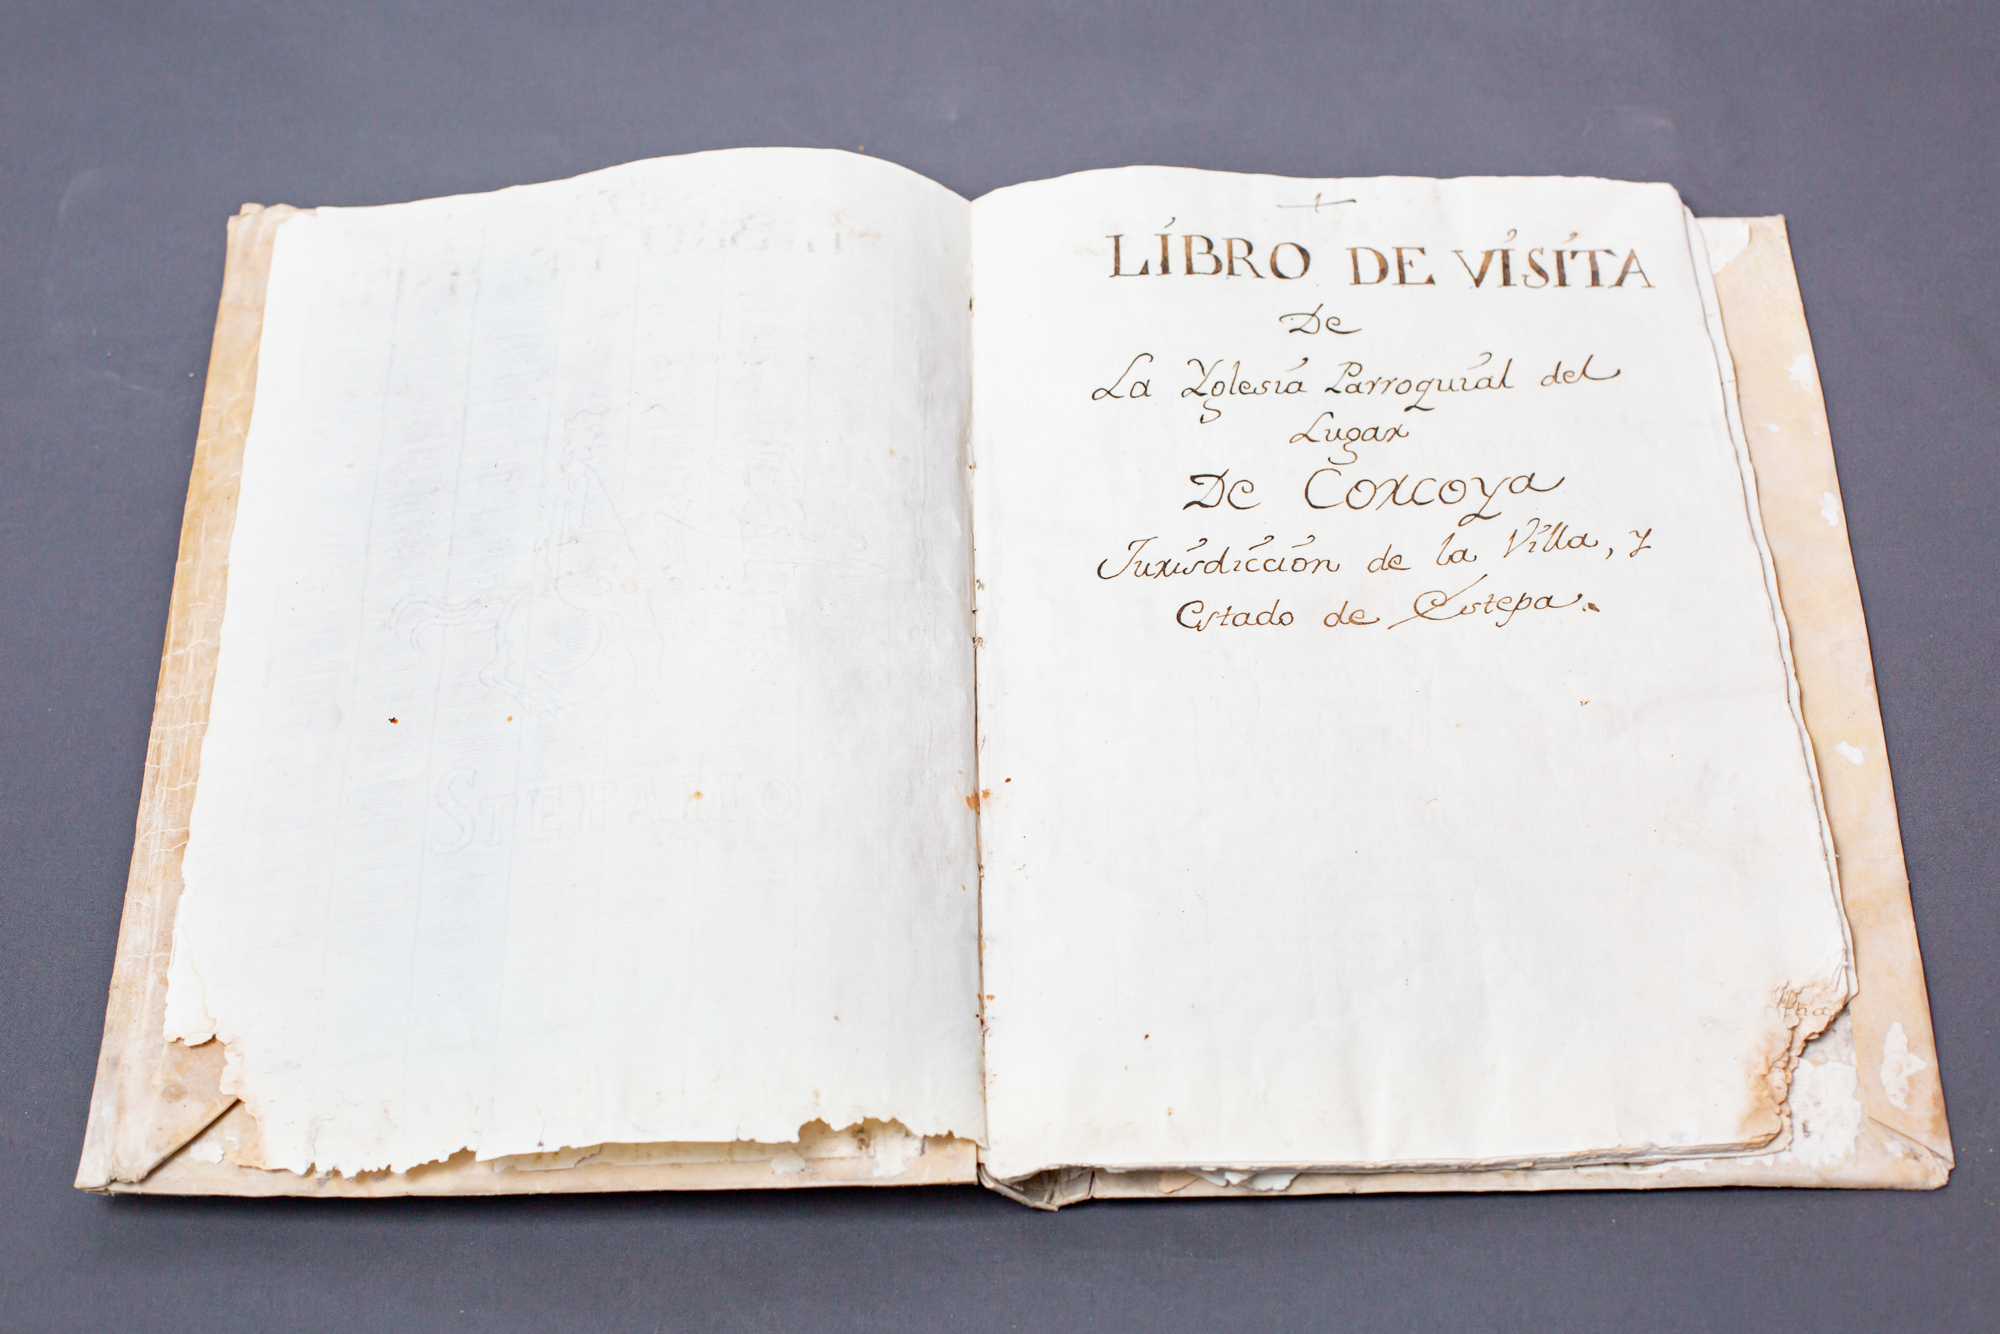 LIBRO DE VISITA
De
La Yglesia Parroquial del
Lugar
De Corcoya
Jurisdiccion de la Villa, y
Estado de Estepa.